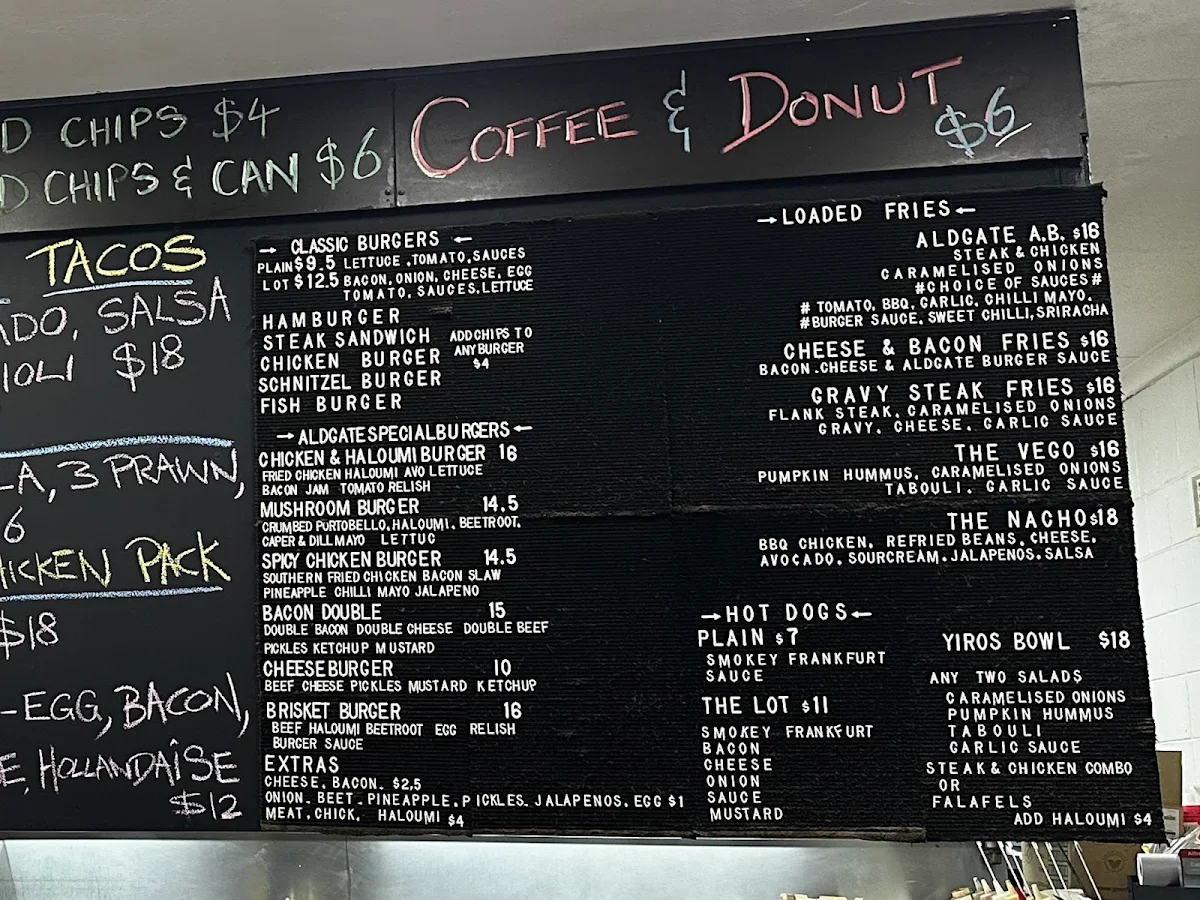 D CHIPS $4
D CHIPS & CAN $6
COFFEE & DONUT $6
TACOS
ADO, SALSA
IOLI $18
LA, 3 PRAWN,
6
HICKEN PACK
$18
-EGG, BACON,
E, HOLLANDAÎSE
$12
→ CLASSIC BURGERS ←
PLAIN $9.5 LETTUCE ,TOMATO,SAUCES
LOT $12.5 BACON, ONION, CHEESE, EGG
TOMATO, SAUCES, LETTUCE
HAMBURGER
STEAK SANDWICH
CHICKEN BURGER
SCHNITZEL BURGER
FISH BURGER
ADD CHIPS TO
ANY BURGER
$4
→ ALDGATE SPECIAL BURGERS ←
CHICKEN & HALOUMI BURGER 16
FRIED CHICKEN HALOUMI AVO LETTUCE
BACON JAM TOMATO RELISH
MUSHROOM BURGER 14.5
CRUMBED PORTOBELLO, HALOUMI, BEETROOT,
CAPER & DILL MAYO LETTUC
SPICY CHICKEN BURGER 14.5
SOUTHERN FRIED CHICKEN BACON SLAW
PINEAPPLE CHILLI MAYO JALAPENO
BACON DOUBLE 15
DOUBLE BACON DOUBLE CHEESE DOUBLE BEEF
PICKLES KETCHUP MUSTARD
CHEESEBURGER 10
BEEF CHEESE PICKLES MUSTARD KETCHUP
BRISKET BURGER 16
BEEF HALOUMI BEETROOT EGG RELISH
BURGER SAUCE
EXTRAS
CHEESE, BACON, $2,5
ONION, BEET, PINEAPPLE, PICKLES, JALAPENOS, EGG $1
MEAT, CHICK, HALOUMI $4
→ LOADED FRIES ←
ALDGATE A.B. $16
STEAK & CHICKEN
CARAMELISED ONIONS
#CHOICE OF SAUCES#
# TOMATO, BBQ, GARLIC, CHILLI MAYO,
#BURGER SAUCE, SWEET CHILLI, SRIRACHA
CHEESE & BACON FRIES $16
BACON .CHEESE & ALDGATE BURGER SAUCE
GRAVY STEAK FRIES $16
FLANK STEAK, CARAMELISED ONIONS
GRAVY, CHEESE, GARLIC SAUCE
THE VEGO $16
PUMPKIN HUMMUS, CARAMELISED ONIONS
TABOULI, GARLIC SAUCE
THE NACHO $18
BBQ CHICKEN, REFRIED BEANS, CHEESE,
AVOCADO, SOURCREAM, JALAPENOS, SALSA
→ HOT DOGS ←
PLAIN $7
SMOKEY FRANKFURT
SAUCE
THE LOT $11
SMOKEY FRANKFURT
BACON
CHEESE
ONION
SAUCE
MUSTARD
YIROS BOWL $18
ANY TWO SALADS
CARAMELISED ONIONS
PUMPKIN HUMMUS
TABOULI
GARLIC SAUCE
STEAK & CHICKEN COMBO
OR
FALAFELS
ADD HALOUMI $4